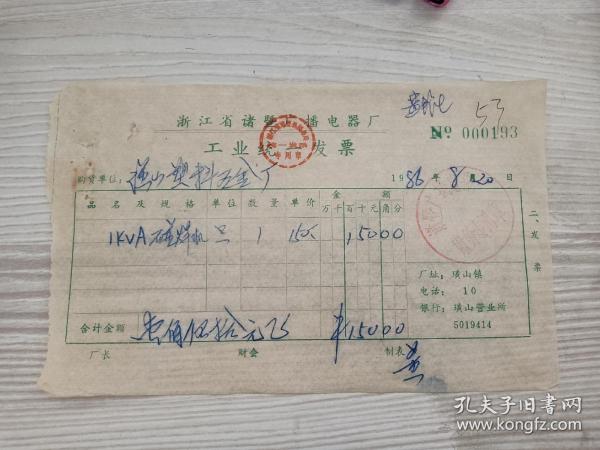 浙江省诸暨 播电器厂
53
工业统一发票
№ 000193
购货单位: 璜山塑料五金厂
1986年8月20日
品名及规格 单位 数量 单价 金额
万千百十元角分
1KVA碰焊机 只 1 150 15000
二、发票
厂址: 璜山镇
电话: 10
银行: 璜山营业所
5019414
合计金额 壹佰伍拾元正 ¥15000
厂长 财会 制表
孔夫子旧书网
www.kongfz.com